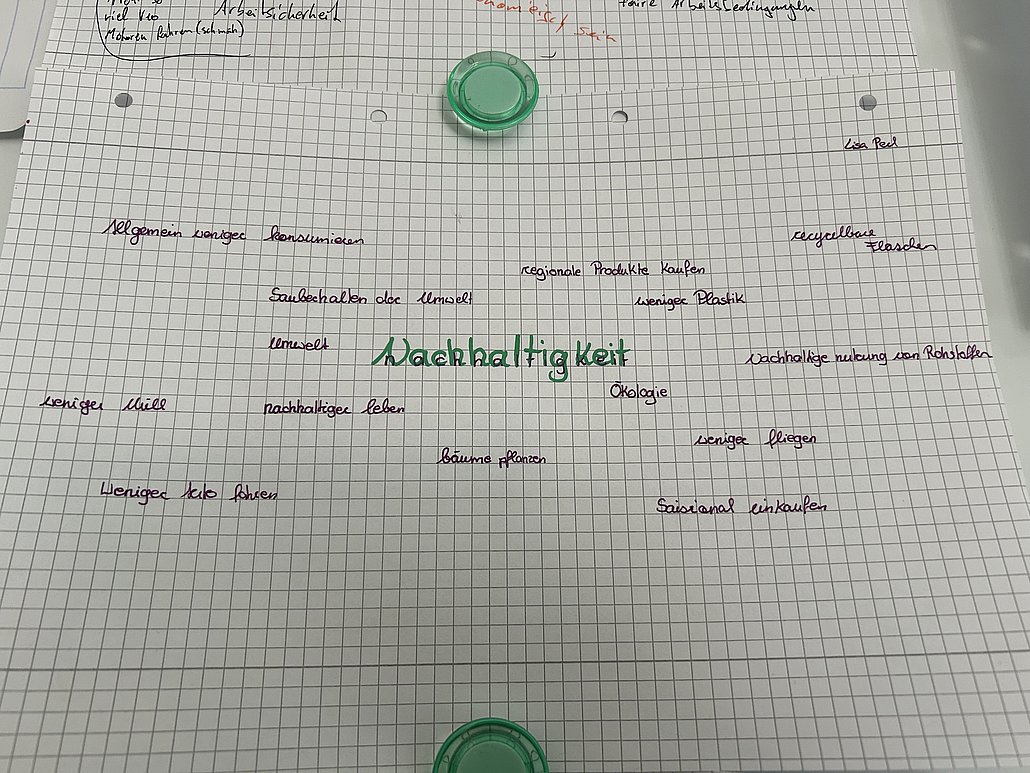 viel
Arbeitsicherheit
faire Arbeitsbedingungen
Motoren fahren (schmäh)
sein
Lisa
Allgemein weniger konsumieren
recycelbare
Flaschen
regionale Produkte kaufen
Sauberhalten der Umwelt
weniger Plastik
Umwelt
Nachhaltigkeit
Nachhaltige nutzung von Rohstoffen
Ökologie
weniger Müll
nachhaltiger leben
weniger fliegen
bäume pflanzen
Weniger Auto fahren
Saisional einkaufen